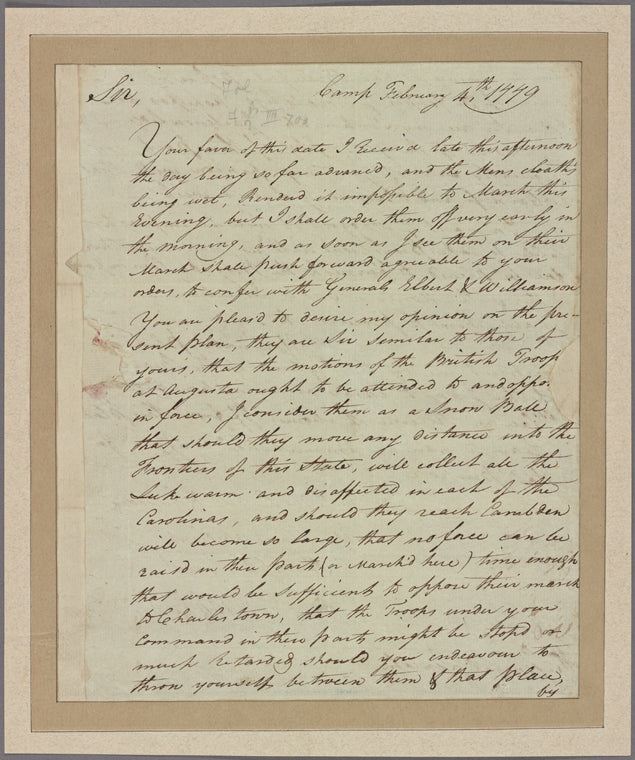 Sir,
Camp February 4th 1779
Your favor of this date I Receivd late this afternoon
the day being so far advanced, and the Mens cloaths
being wet, Renderd it impossible to March this
Evening, but I shall order them off very early in
the morning, and as soon as I see them on their
March shall push forward agreeable to your
orders, to confer with Generals Elbert & Williamson
You are pleasd to desire my opinion on the pre-
sent plan, they are Sir similar to those of
yours, that the motions of the British Troop
at Augusta ought to be attended to and oppo.
in force, I consider them as a Snow Ball
that should they move any distance into the
Frontiers of this State, will collect all the
Luke warm and disaffected in each of the
Carolinas, and should they reach Cambden
will become so large, that no force can be
raisd in these parts (or March'd here) time enough
that would be sufficient to oppose their march
to Charlestown, that the Troops under your
command in these parts might be stopd or
much retarded should you endeavour to
throw yourself between them & that place,
by